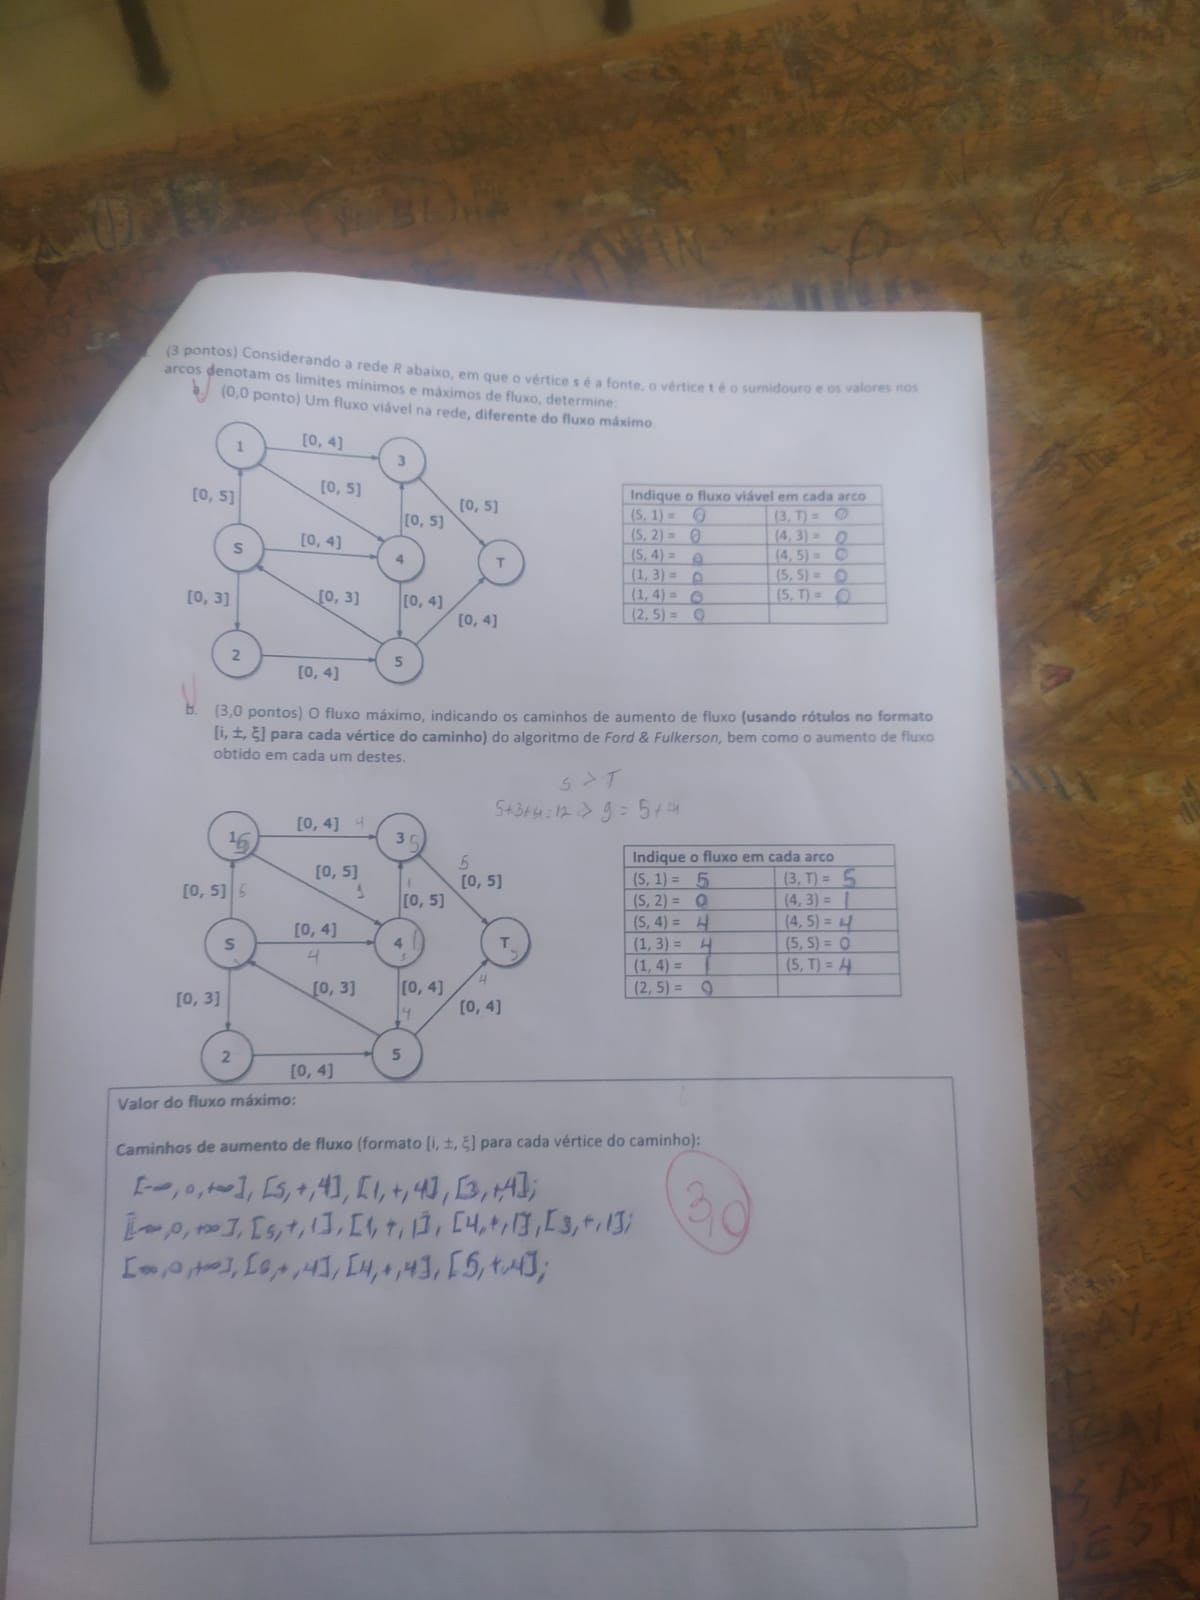 (3 pontos) Considerando a rede R abaixo, em que o vértice s é a fonte, o vértice t é o sumidouro e os valores nos
arcos denotam os limites mínimos e máximos de fluxo, determine:
(0,0 ponto) Um fluxo viável na rede, diferente do fluxo máximo.
1
[0, 4]
3
[0, 5]
[0, 5]
[0, 5]
[0, 5]
S
[0, 4]
4
T
[0, 3]
[0, 3]
[0, 4]
[0, 4]
2
[0, 4]
5
Indique o fluxo viável em cada arco
(S, 1) = 0 (3, T) = 0
(S, 2) = 0 (4, 3) = 0
(S, 4) = 0 (4, 5) = 0
(1, 3) = 0 (5, S) = 0
(1, 4) = 0 (5, T) = 0
(2, 5) = 0
b. (3,0 pontos) O fluxo máximo, indicando os caminhos de aumento de fluxo (usando rótulos no formato
[i, ±, ξ] para cada vértice do caminho) do algoritmo de Ford & Fulkerson, bem como o aumento de fluxo
obtido em cada um destes.
S > T
5+3+4=12 => 9 = 5+4
1 5
[0, 4] 4
3 5
[0, 5] 5
[0, 5] 1
1 [0, 5]
5 [0, 5]
S
[0, 4] 4
4 1
T
[0, 3]
[0, 3]
[0, 4] 4
4 [0, 4]
2
[0, 4]
5
Indique o fluxo em cada arco
(S, 1) = 5 (3, T) = 5
(S, 2) = 0 (4, 3) = 1
(S, 4) = 4 (4, 5) = 4
(1, 3) = 4 (5, S) = 0
(1, 4) = 1 (5, T) = 4
(2, 5) = 0
Valor do fluxo máximo:
Caminhos de aumento de fluxo (formato [i, ±, ξ] para cada vértice do caminho):
[-∞, 0, +∞], [S, +, 4], [1, +, 4], [3, +, 4];
[-∞, 0, +∞], [S, +, 1], [1, +, 1], [4, +, 1], [3, +, 1];
[∞, 0, +∞], [S, +, 4], [4, +, 4], [5, +, 4];
3,0